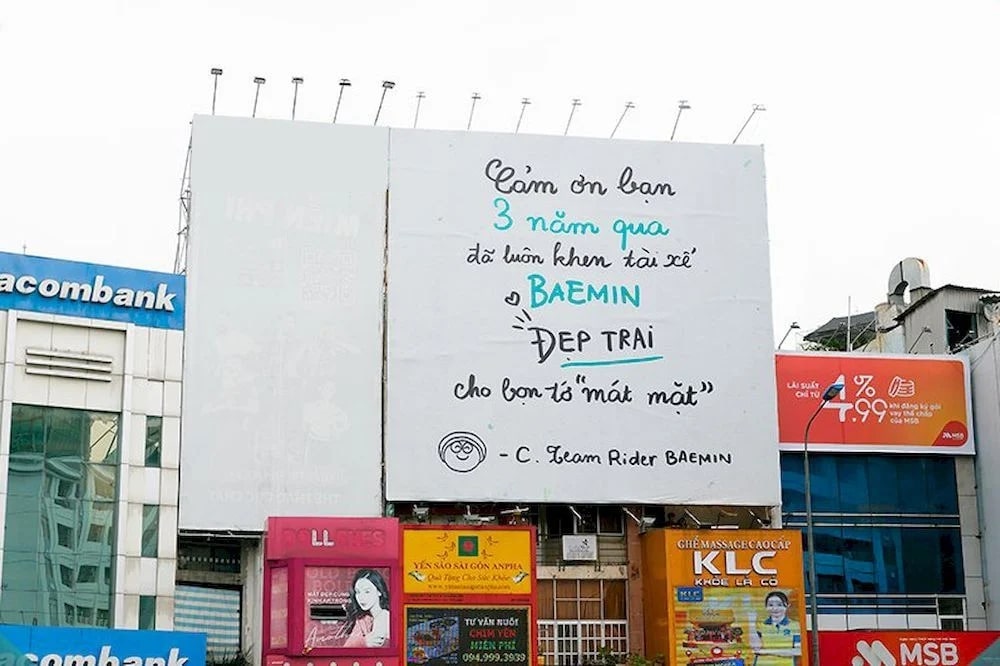 Cảm ơn bạn
3 năm qua
đã luôn khen tài xế
BAEMIN
ĐẸP TRAi
cho bọn tớ "mát mặt"
- C. Team Rider BAEMIN
acombank
LÃI SUẤT
CHỈ TỪ
4.99%
khi đăng ký gói
vay thế chấp
của MSB
MSB
LL
YẾN SÀO SÀI GÒN ANPHA
Quà Tặng Cho Sức Khỏe
TƯ VẤN NUÔI
CHIM YẾN
MIỄN PHÍ
094.999.3939
GHẾ MASSAGE CAO CẤP
KLC
KHỎE LÀ CÓ
KLC
combank
MSB